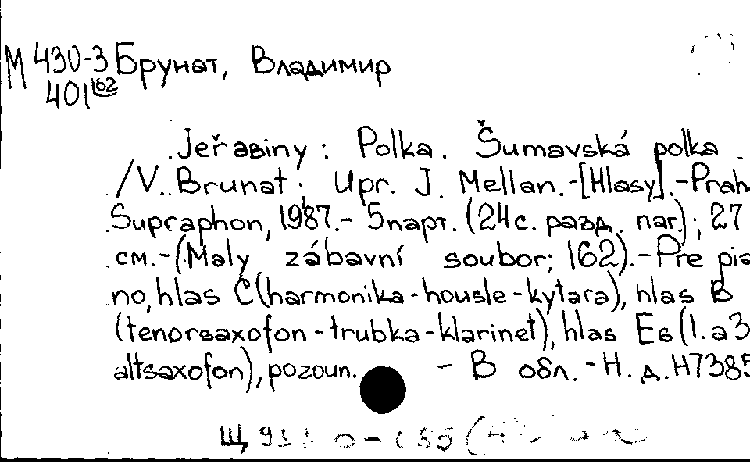 М 430-3 Брунат, Владимир
401 162
Jeřabiny : Polka. Šumavská polka.
/V. Brunat; Upr. J. Mellan.-[Hlasy].-Prah
Supraphon, 1987.- 5парт. (24с. разд. паг.); 27
см.-(Maly zábavní soubor; 162).-Pre pia
no, hlas C (harmonika-housle-kytara), hlas B
(tenorsaxofon-trubka-klarinet), hlas Es (1. a 3
altsaxofon), pozoun. - В обл. - Н. д. H7385
Щ